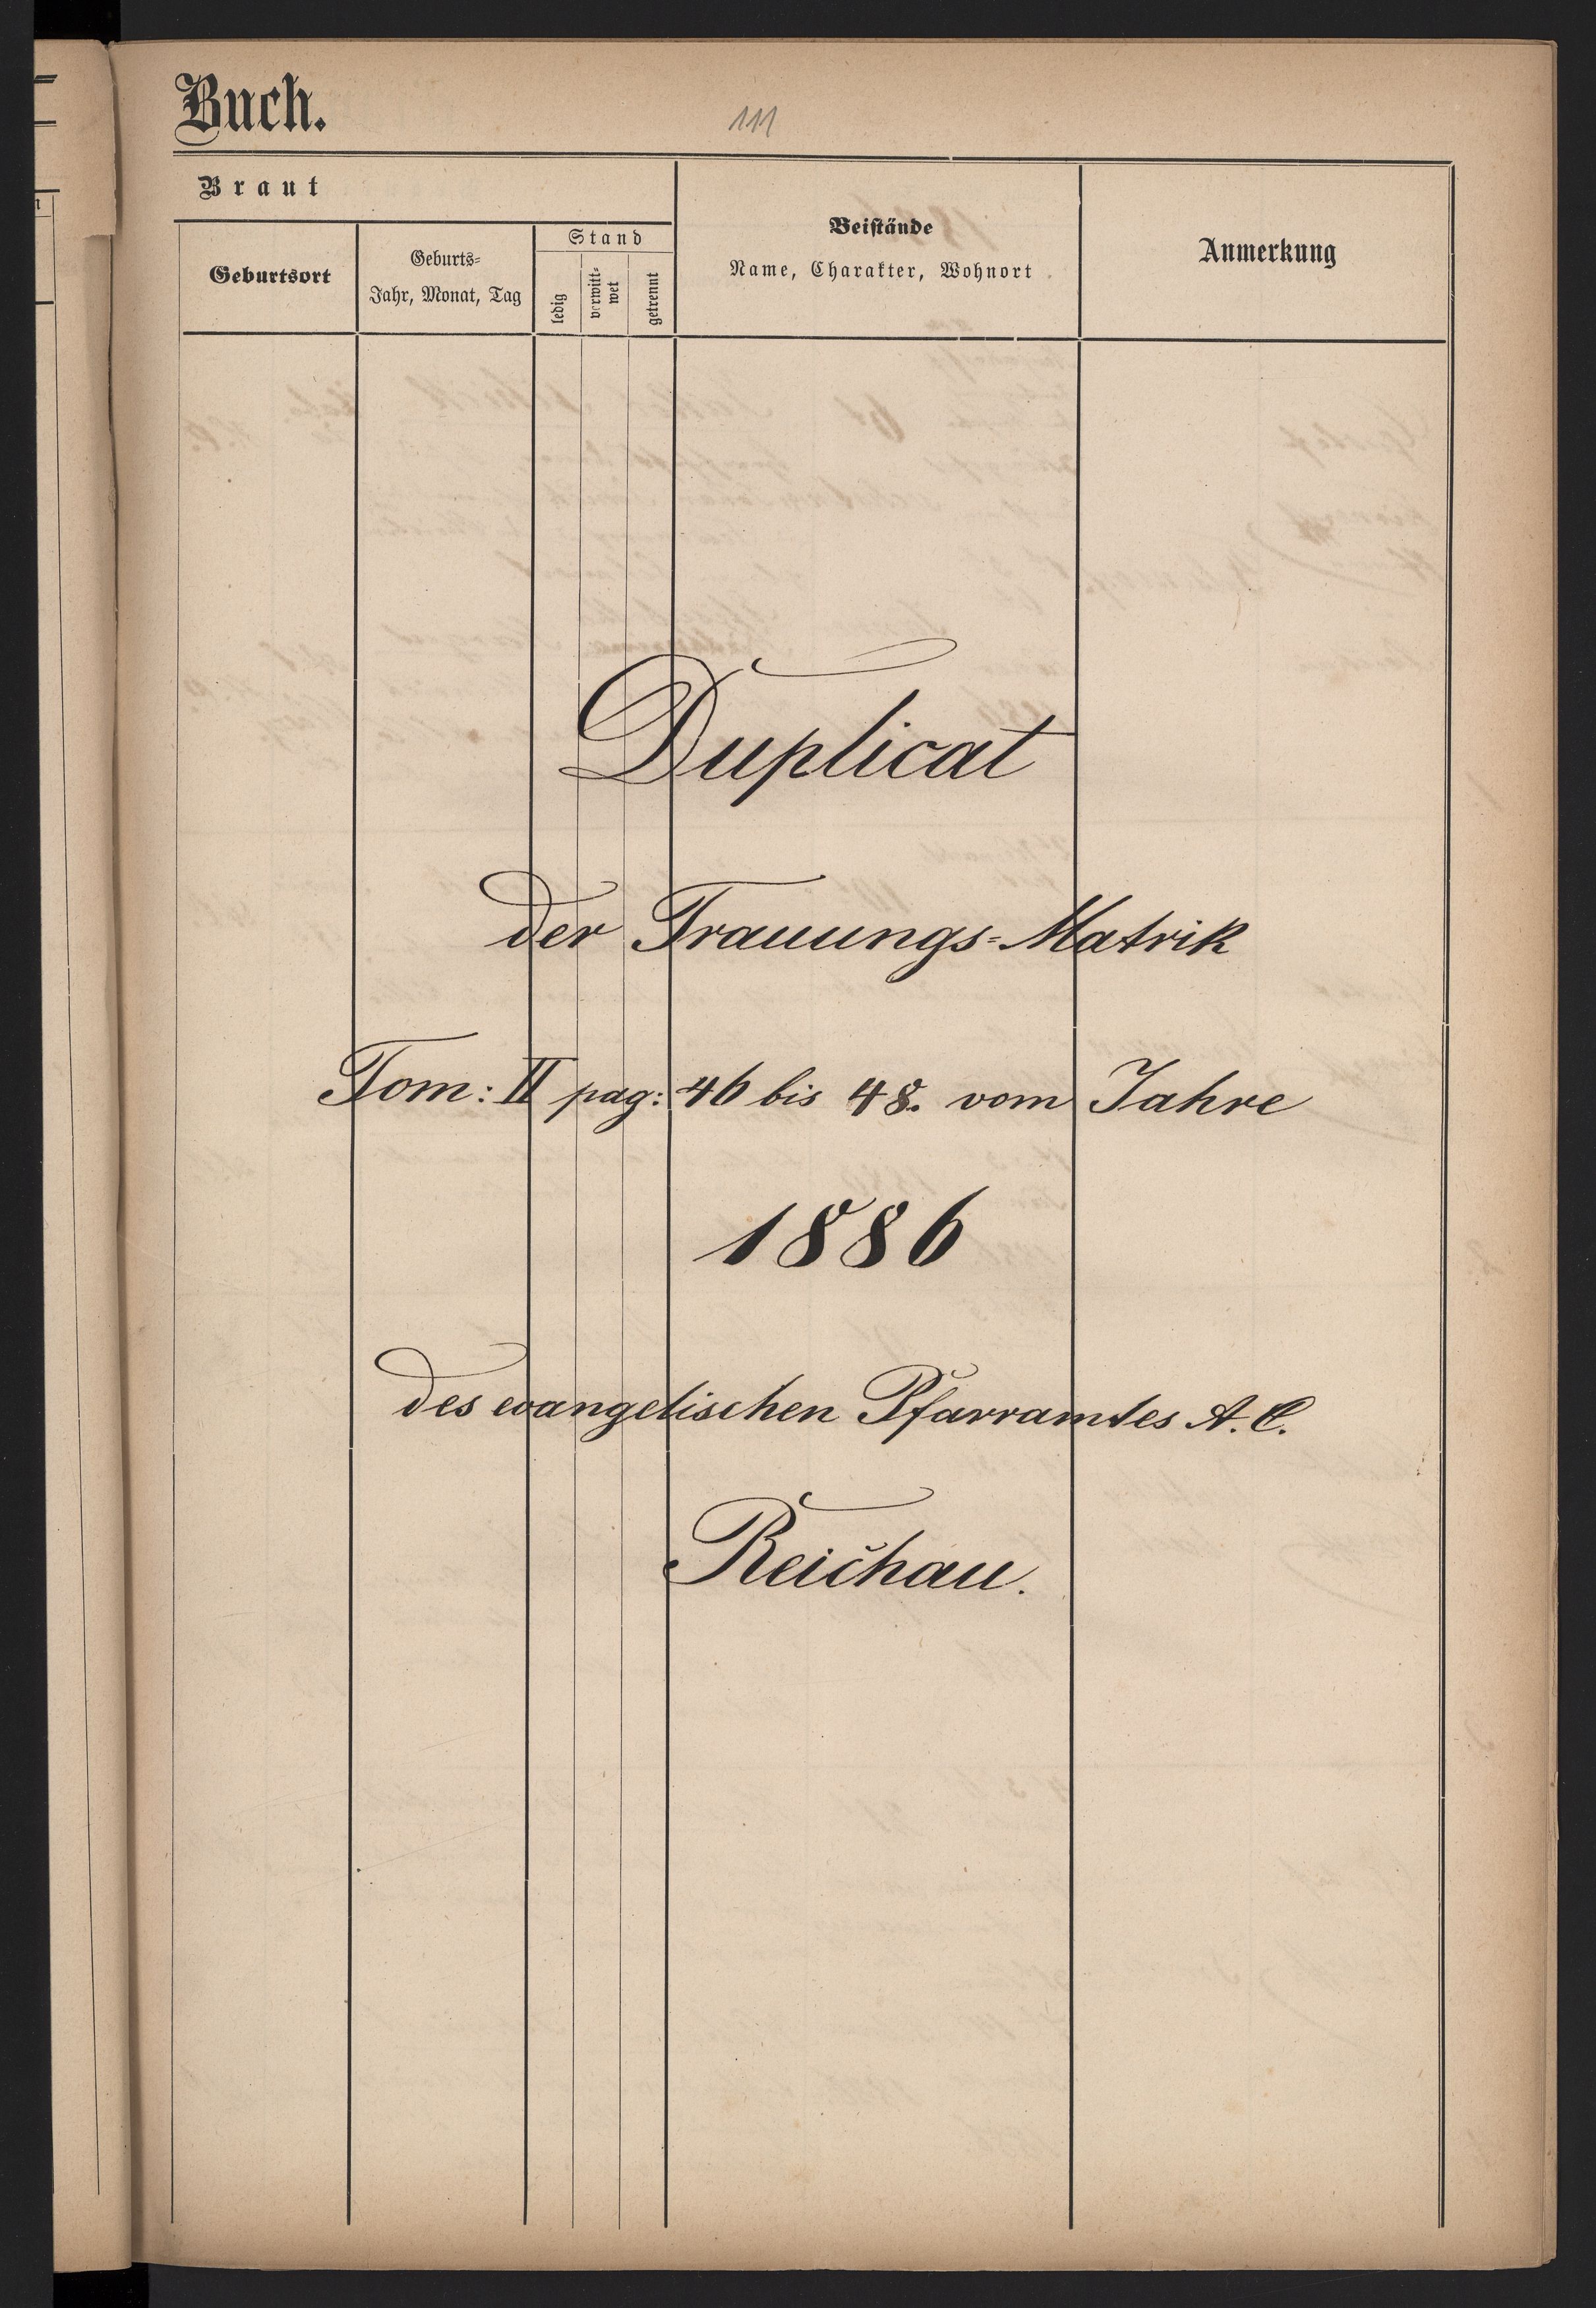 Buch.
111
Braut
Geburtsort
Geburts-
Jahr, Monat, Tag
Stand
ledig
verwitt-
wet
getrennt
Beistände
Name, Charakter, Wohnort
Anmerkung
Duplicat
der Trauungs-Matrik
Tom: II pag: 46 bis 48. vom Jahre
1886
des evangelischen Pfarramtes A. C.
Reichau.